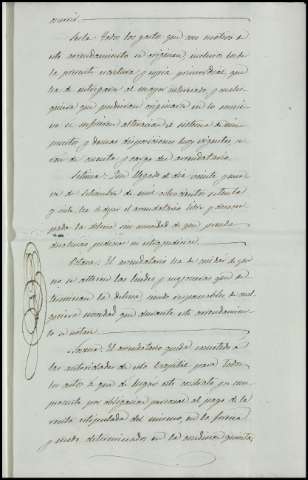 Sesta: Todos los gastos que con motivo de
este arrendamiento se originen, inclusos los de
la presente escritura y copia primordial que
ha de entregarse al mayor interesado, y
quiera que pudieran originarse en lo
si sufriesen alteracion el sistema de im
puestos y demas disposiciones hoy vigentes, se
ran de cuenta y cargo del arrendatario.
Setima: Que llegado el dia veinte y nue
ve de Setiembre de mil ochocientos setenta
y siete, ha de dejar el arrendatario libre y desocu
pada la dehesa sin necesidad de que preceda
desahucio judicial ni estrajudicial.
Octava: El arrendatario ha de cuidar de que
no se alteren los lindes y mojoneras que de
terminan la dehesa, siendo responsable de cual
quiera novedad que durante este arrendamien
to se notare.
Novena: El arrendatario queda sometido a
las autoridades de esta para todos
los actos a que dé lugar este contrato, y se com
promete por obligacion personal al pago de la
renta estipulada del mismo, en la forma
y modo determinados en la condicion quinta,